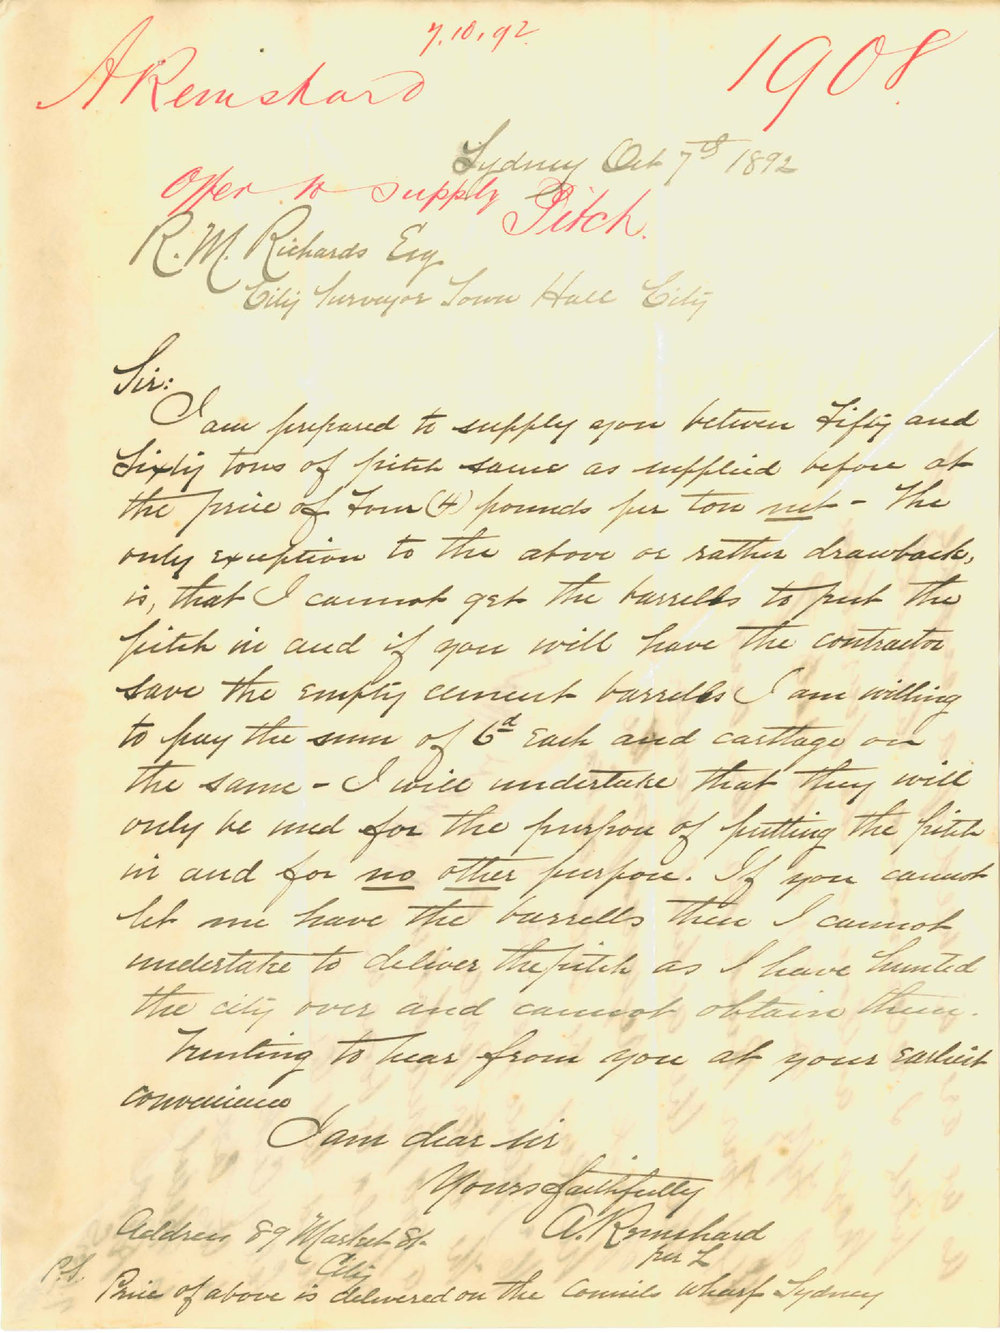 7.10.92
A Remshard
1908.
Sydney Oct 7th 1892
Offer to supply
Pitch.
R. M. Richards Esq
City Surveyor Town Hall City
Sir:
I am prepared to supply you between Fifty and
Sixty tons of pitch same as supplied before at
the price of Four (4) pounds per ton net - The
only exception to the above or rather drawback,
is, that I cannot get the barrells to put the
pitch in and if you will have the contractor
save the empty cement barrells I am willing
to pay the sum of 6d each and carttage on
the same - I will undertake that they will
only be used for the purpose of putting the pitch
in and for no other purpose. If you cannot
let me have the barrells then I cannot
undertake to deliver the pitch as I have hunted
the city over and cannot obtain them.
Trusting to hear from you at your earliest
convenience
I am dear sir
Yours faithfully
A. Remshard
per L
Address 89 Market St.
City
P.S. Price of above is delivered on the Councils wharf Sydney